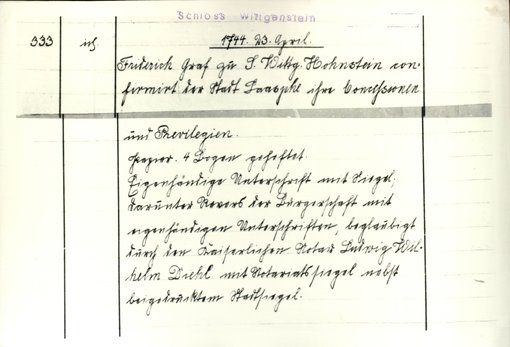 Schloss Wittgenstein
333 ich. 1744. 23. April.
Friderich Graf zu S. Wittg. Hohnstein con-
firmirt der Stadt Laasphe ihre Concessionen
und Previlegien.
Papier. 4 Bogen geheftet.
Eigenhändige Unterschrift mit Siegel;
darunter Revers der Bürgerschaft mit
eigenhändigen Unterschriften, beglaubigt
durch den Kaiserlichen Notar Ludwig Wil-
helm Diehl mit Notariatssiegel nebst
beigedrucktem Stadtsiegel.